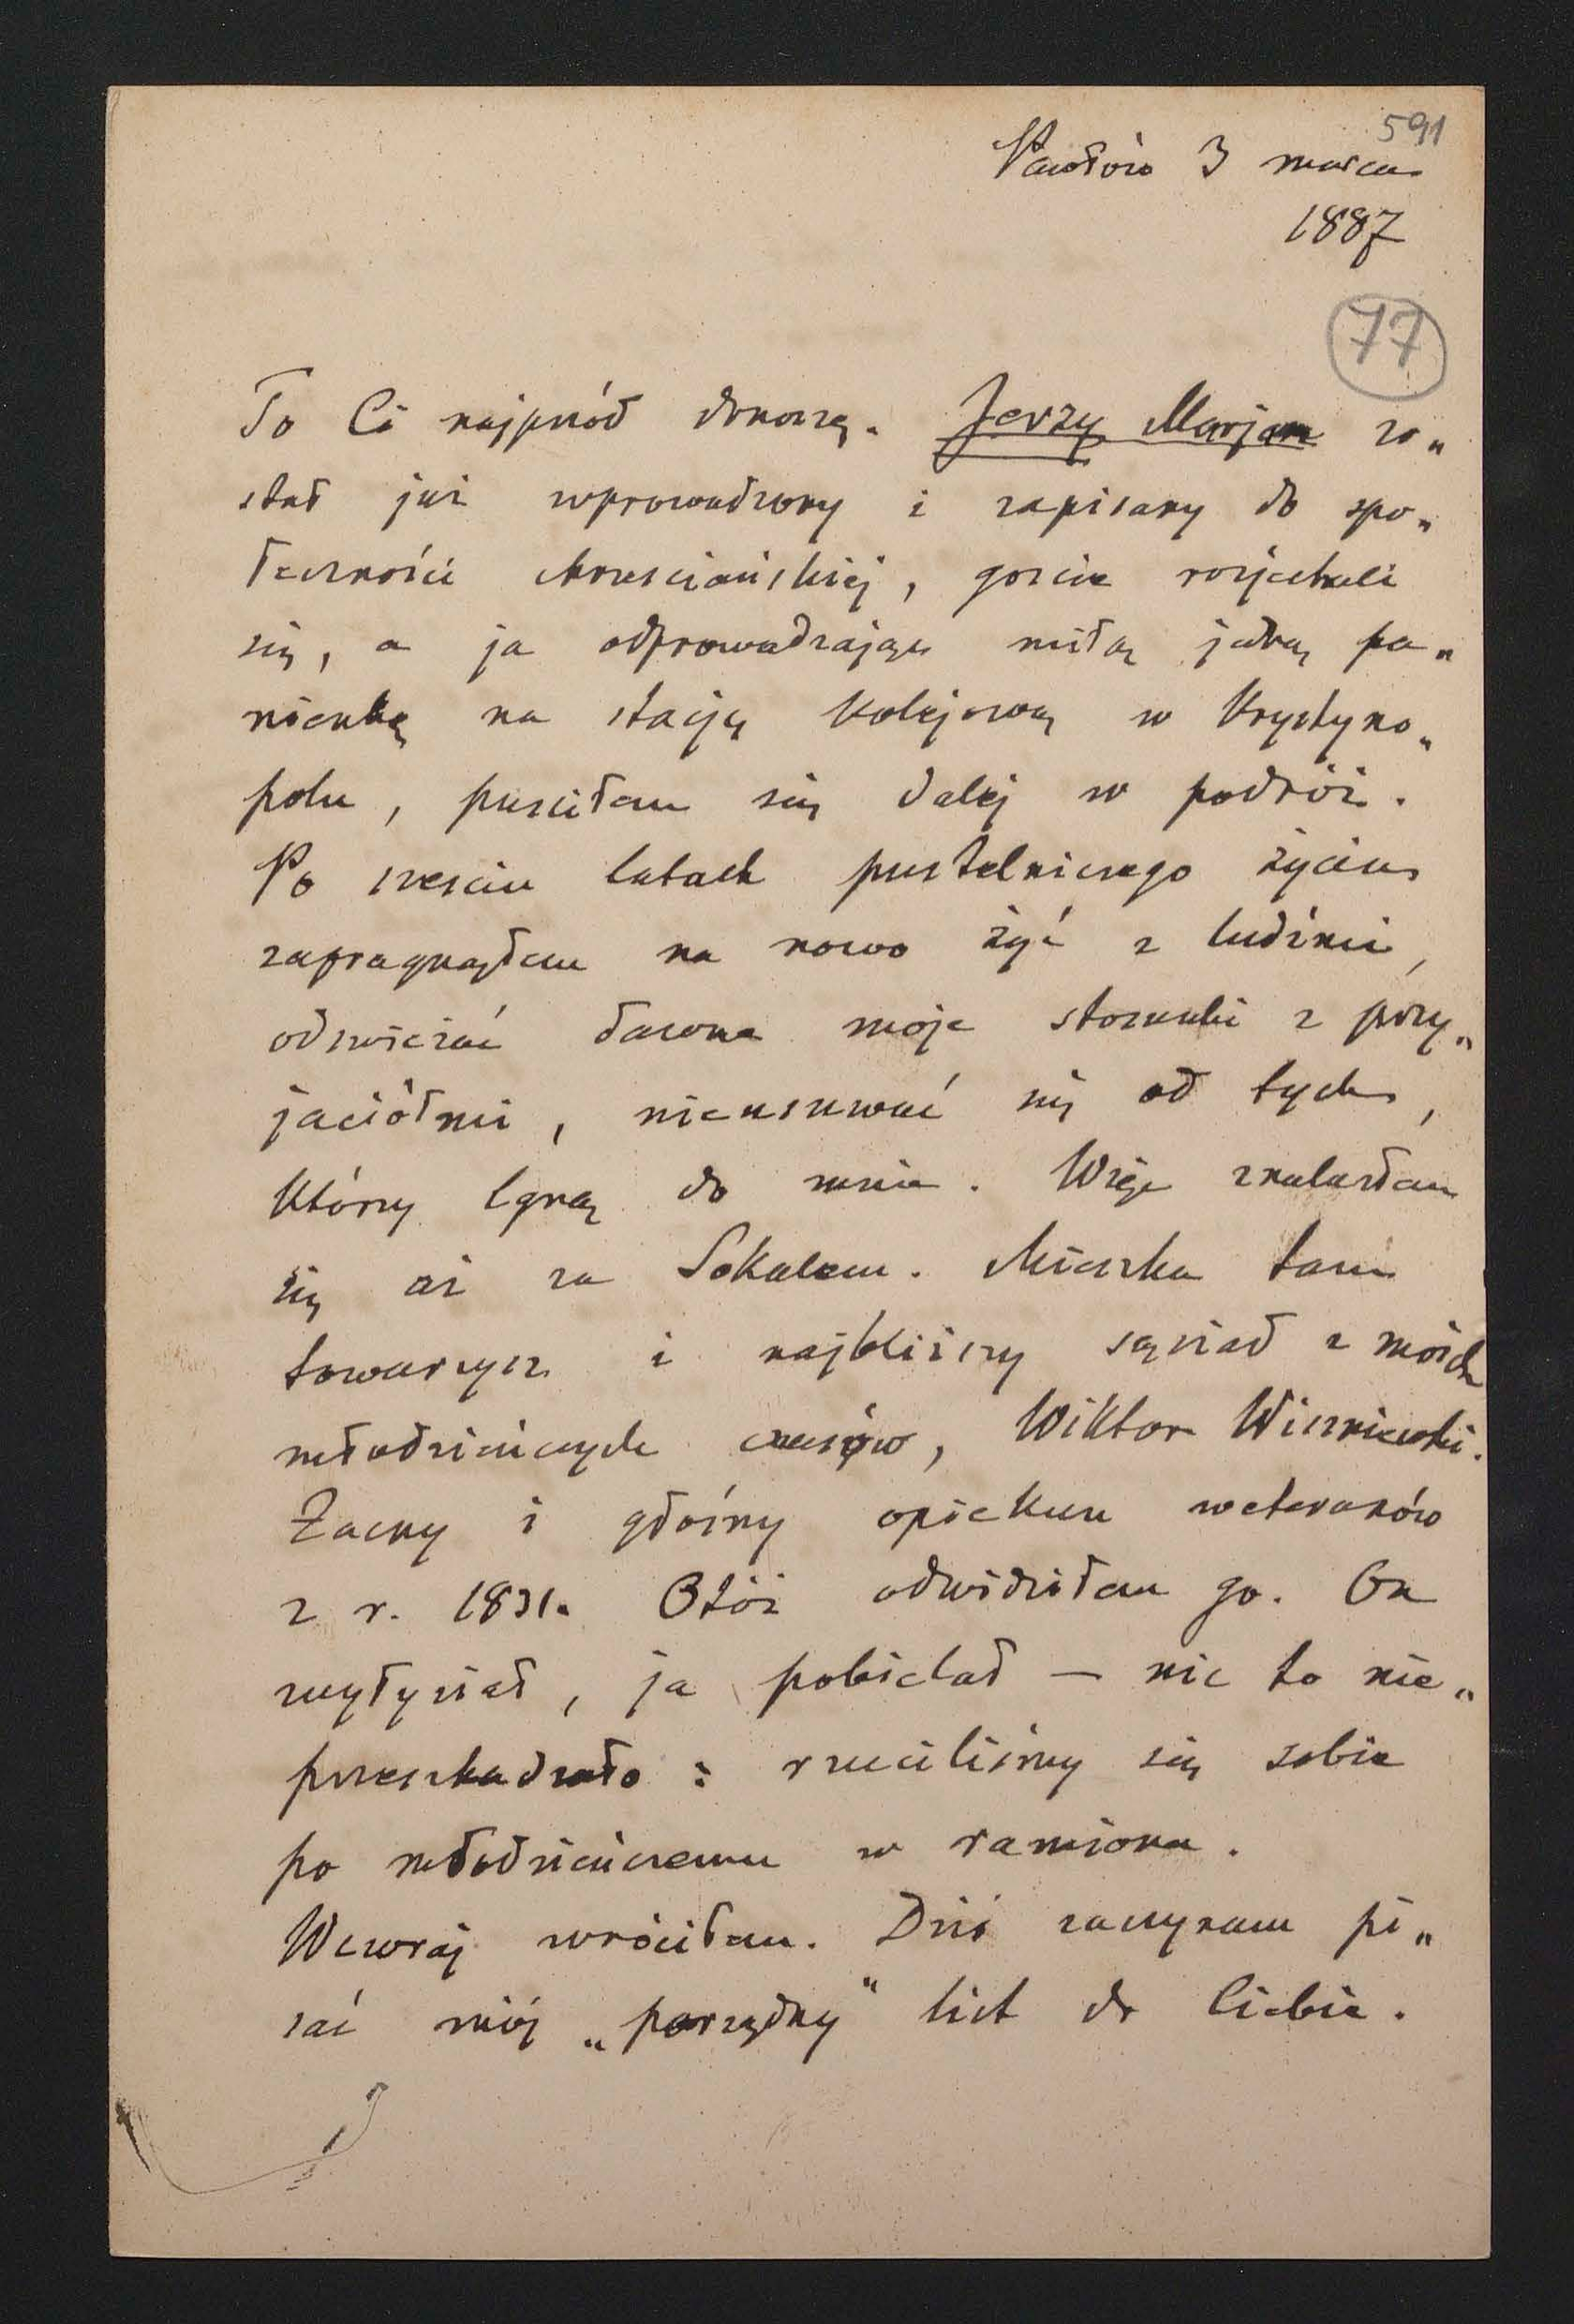 591
Pawłów 3 marca
1887
77
To Ci najprzód donoszę. Jerzy Marjan zo„
stał już wprowadzony i zapisany do spo„
łeczności chrześciańskiej, goście rozjechali
się, a ja odprowadzając miłą jedną pa„
nienkę na stację kolejową w Krystyno„
polu, puściłem się dalej w podróż.
Po sześciu latach pustelniczego życia
zapragnąłem na nowo żyć z ludźmi,
odświeżać dawne moje stosunki z przy„
jaciółmi, nieusuwać się od tych,
którzy lgną do mnie. Więc znalazłem
się aż za Sokalem. Mieszka tam
towarzysz i najbliższy sąsiad z moich
młodzieńczych czasów, Wiktor Wiszniewski.
Zacny i głośny opiekun weteranów
z r. 1831. Otóż odwidziłem go. On
wyłysiał, ja pobielał — nic to nie„
przeszkadzało : rzuciliśmy się sobie
po młodzieńczemu w ramiona.
Wczoraj wróciłem. Dziś zaczynam pi„
sać mój „porządny" list do Ciebie.